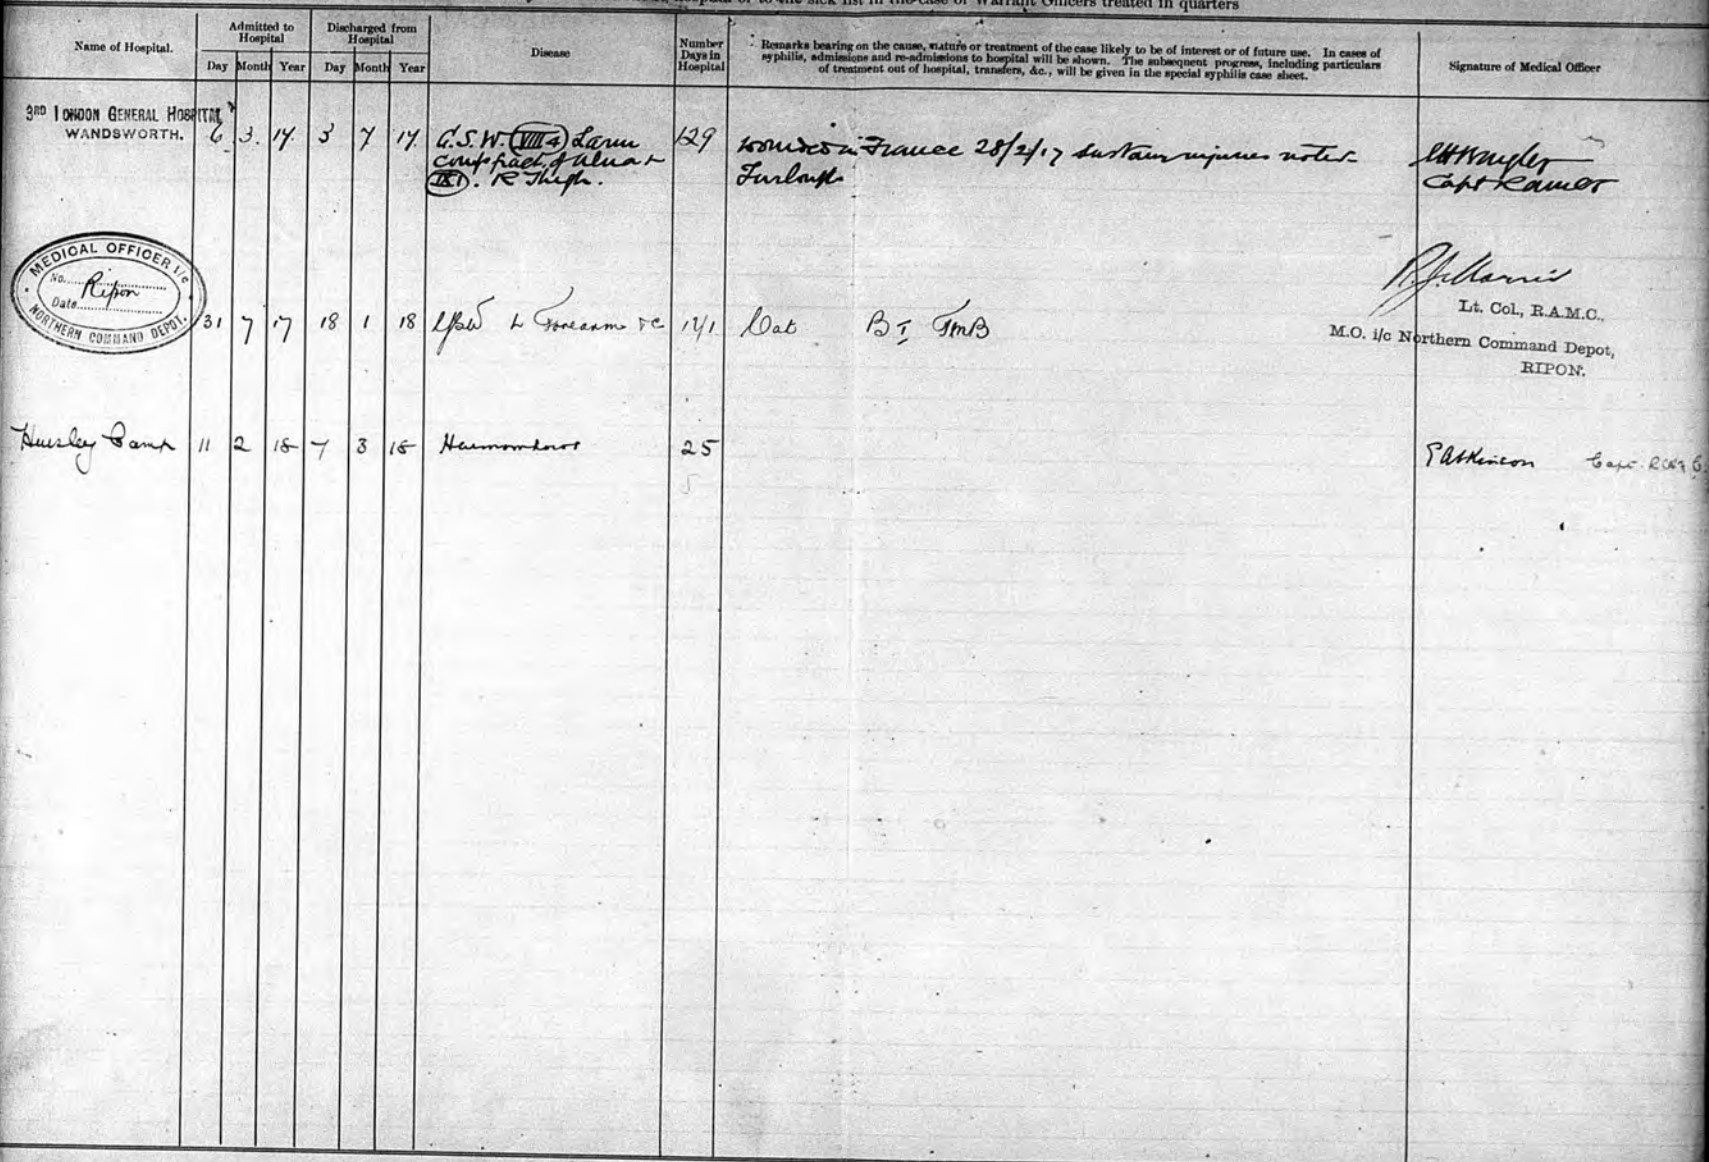 hospital or to the sick list in the case of Warrant Officers treated in quarters
Name of Hospital.
Admitted to Hospital
Discharged from Hospital
Disease
Number Days in Hospital
Remarks bearing on the cause, nature or treatment of the case likely to be of interest or of future use. In cases of
syphilis, admissions and re-admissions to hospital will be shown. The subsequent progress, including particulars
of treatment out of hospital, transfers, &c., will be given in the special syphilis case sheet.
Signature of Medical Officer
Day Month Year Day Month Year
3RD LONDON GENERAL HOSPITAL,
WANDSWORTH. 6 3. 17. 3 7 17. G.S.W. (VIII 4) L arm 129 wounded in France 28/2/17 sustain injuries noted
comp fract. of ulna +
(IX1). R Thigh. Furlough Capt RAMC T
MEDICAL OFFICER i/c
No. Ripon
Date
NORTHERN COMMAND DEPOT.
31 7 17 18 1 18 GSW L Forearm &c 171 Cat B I TMB
Lt. Col., R.A.M.C.,
M.O. i/c Northern Command Depot,
RIPON.
Hursley Camp 11 2 18 7 3 18 Haemorrhoids 25 Atkinson Capt. RAMC